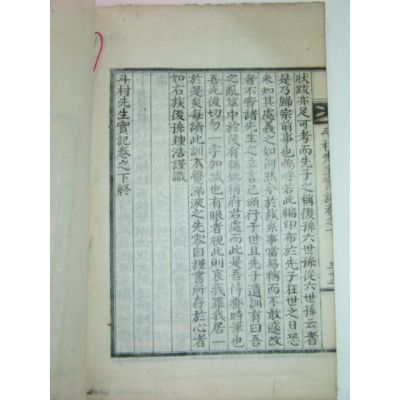 斗村先生實記卷之下
狀跋亦足可考而先子之稱後孫六世孫從六世孫云者
是乃歸宗前事也嗚呼若此編印布於先子在世之日恐
未知其處義之如何然今於族系事當易稱而不敢遽改
者不啻諸先生之立言已頒行于世且先子遺訓有曰吾
之亂草中於後有稱妣稱府君處而此是吾侍養時筆也
吾死後切勿一字加減也有眼者視此則哀我罪我居一
於是矣每讀此訓不覺涕淚之先零因謹書所存於心者
如右族後孫鍾浩謹識
斗村先生實記卷之下終